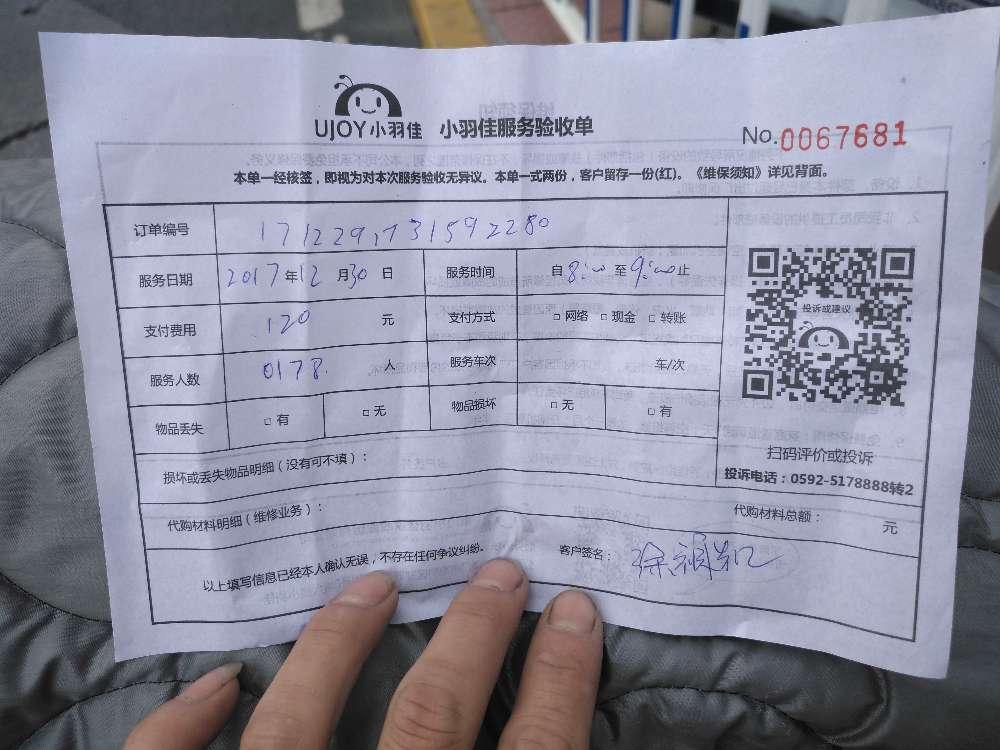 UJOY小羽佳 小羽佳服务验收单
No.0067681
本单一经核签，即视为对本次服务验收无异议。本单一式两份，客户留存一份(红)。《维保须知》详见背面。
订单编号 1712291731592280
服务日期 2017年12月30日 服务时间 自8:00至9:00止
支付费用 120 元 支付方式 □网络 □现金 □转账
服务人数 0178. 人 服务车次 车/次
物品丢失 □有 □无 物品损坏 □无 □有
投诉或建议
扫码评价或投诉
投诉电话：0592-5178888转2
损坏或丢失物品明细（没有可不填）：
代购材料明细（维修业务）： 代购材料总额： 元
以上填写信息已经本人确认无误，不存在任何争议纠纷。 客户签名：